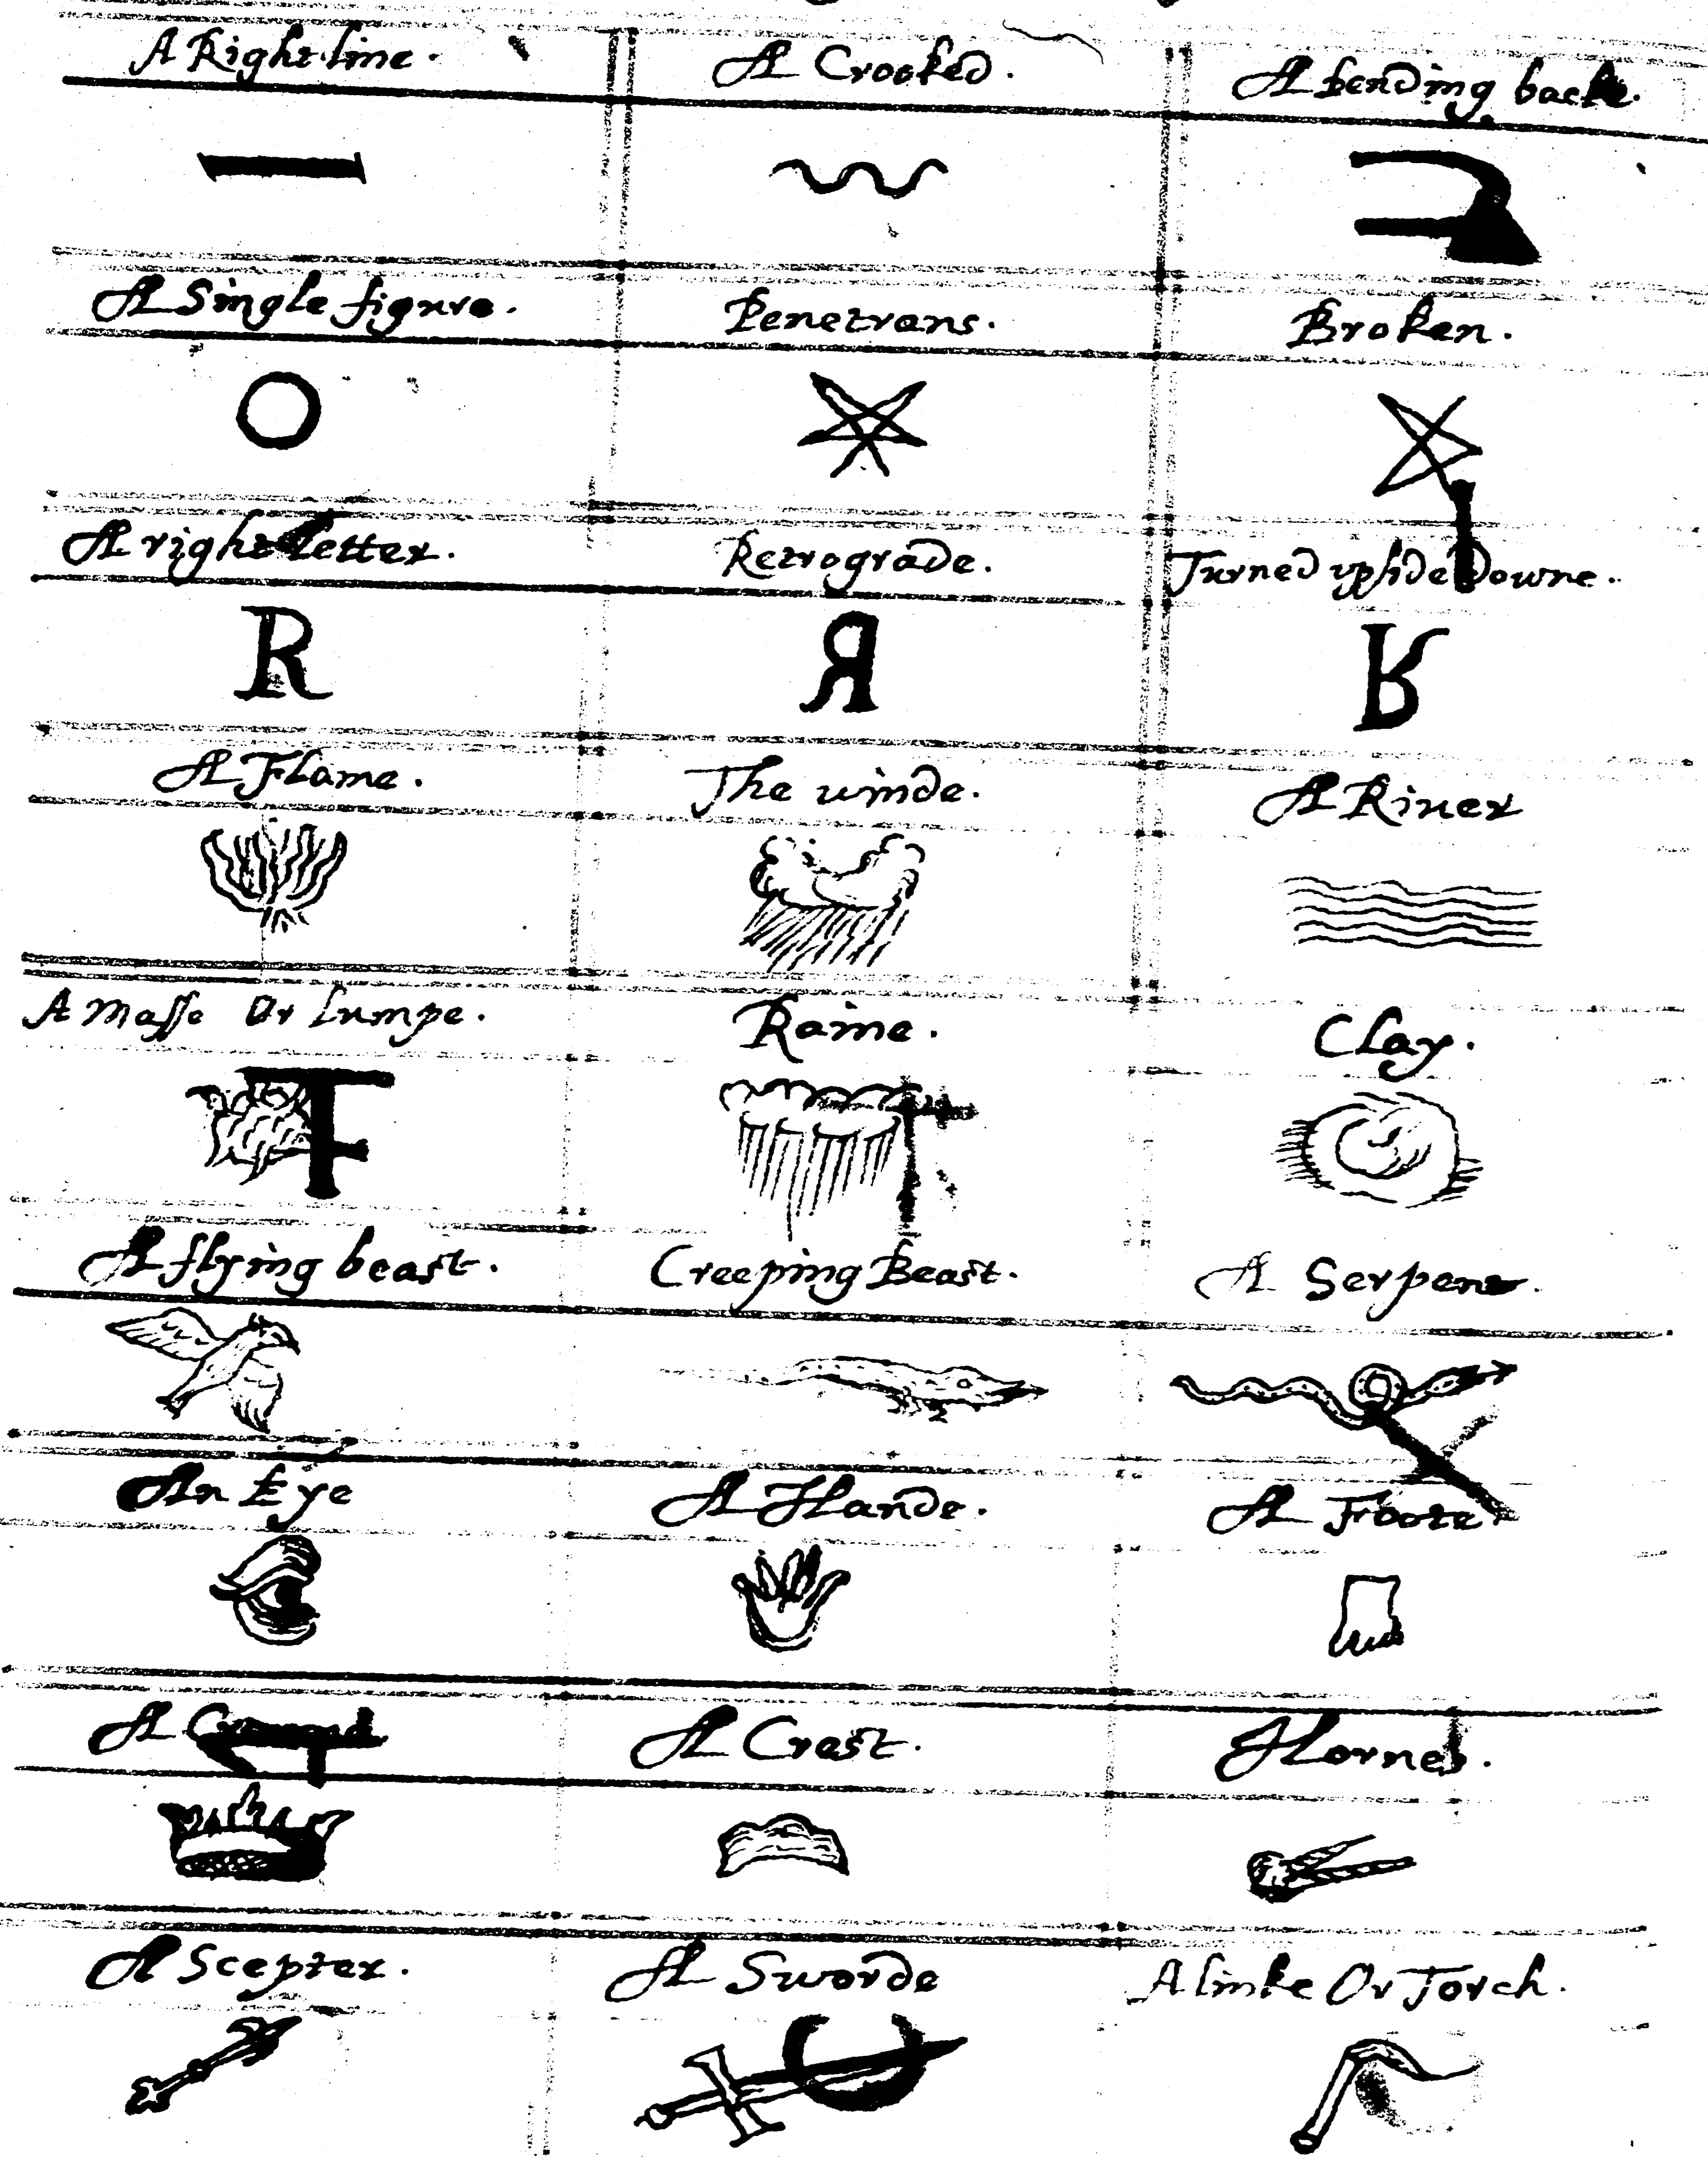 A Right line.
A Crooked.
A bending backe.
A Single figure.
Penetrans.
Broken.
A right letter.
Retrograde.
Turned upside downe.
R
Я
A Flame.
The winde.
A Riuer
A Masse Or lumpe.
Raine.
Clay.
A flying beast.
Creeping Beast.
A Serpent.
An Eye
A Hande.
A Foote
A
A Crest.
Hornes.
A Scepter.
A Sworde
A linke Or Torch.